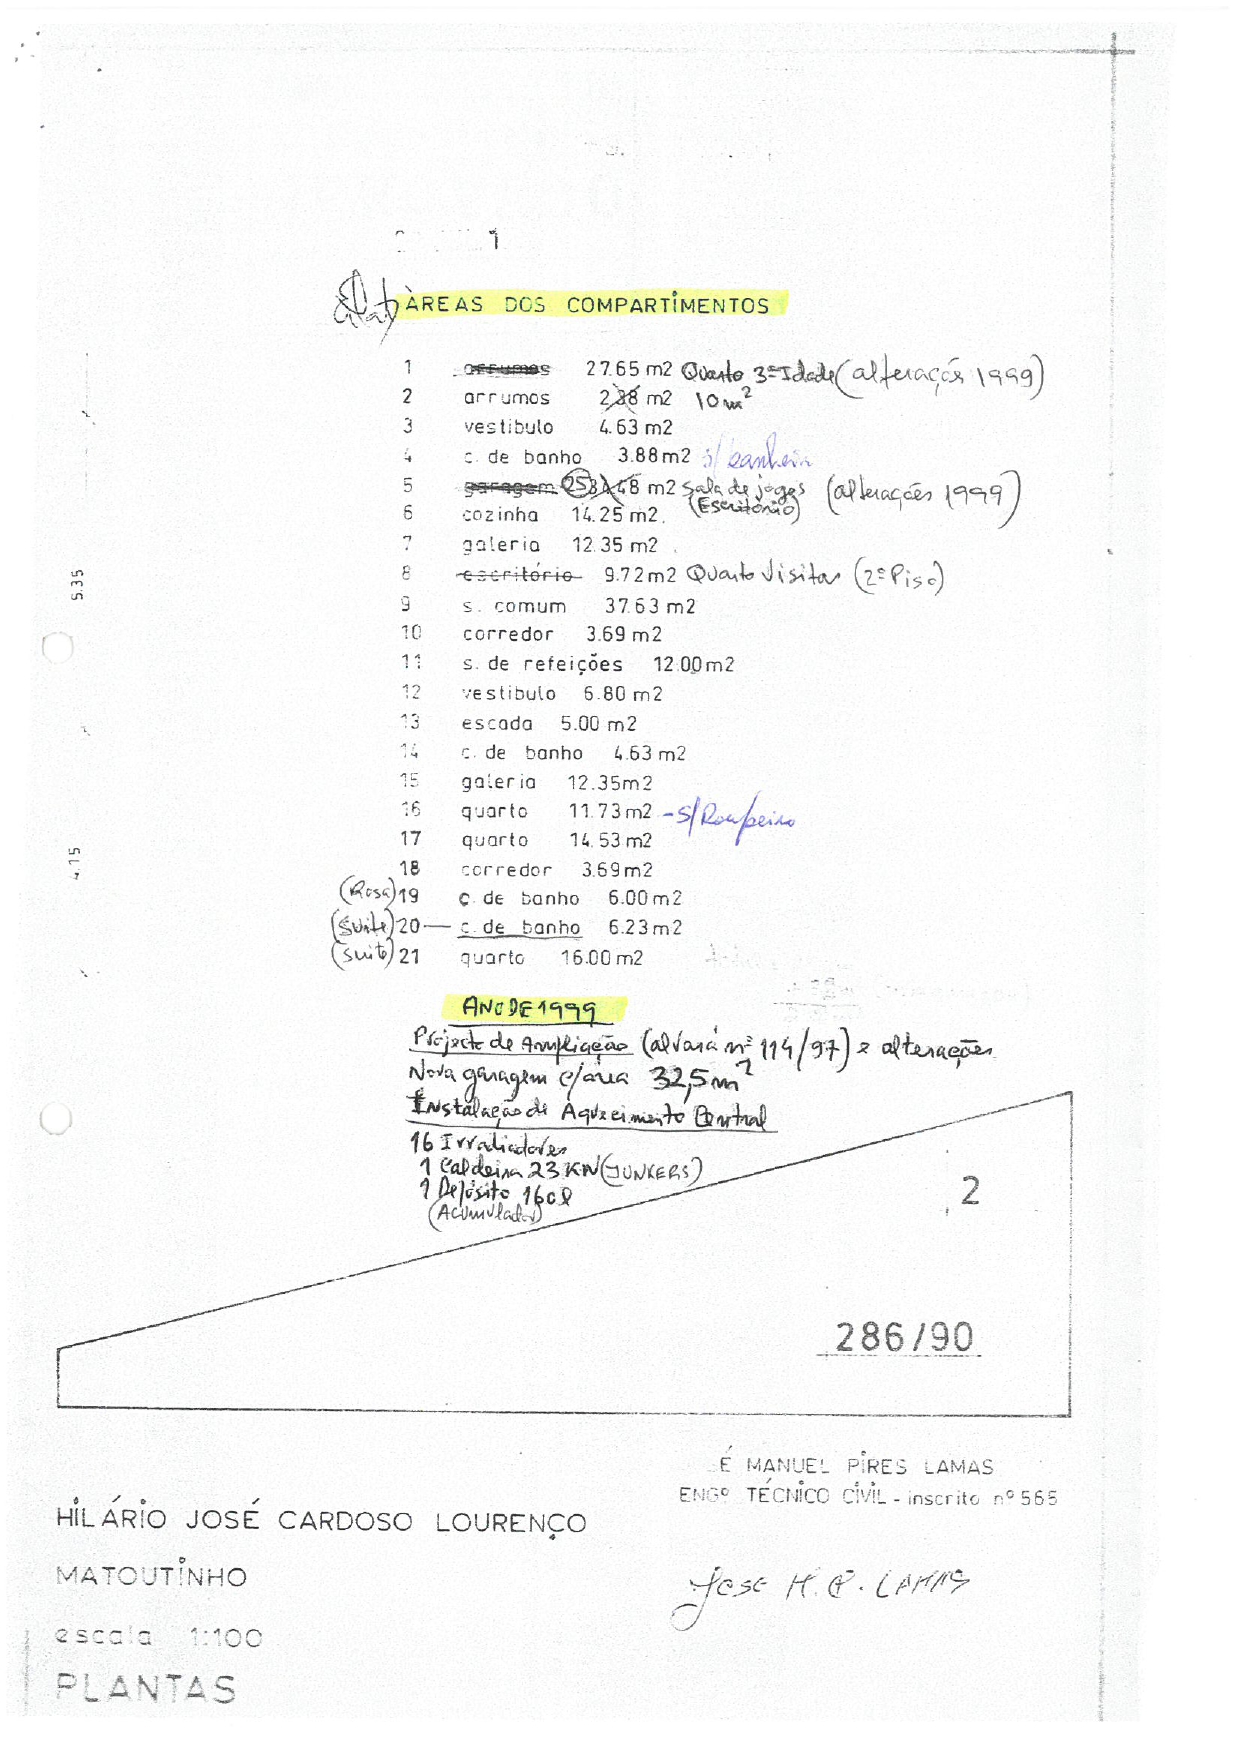 1
ÀREAS DOS COMPARTIMENTOS
1 arrumos 27.65 m2 Quarto 3ª Idade (alterações 1999)
2 arrumos 2.38 m2 10 m²
3 vestíbulo 4.63 m2
4 c. de banho 3.88 m2 s/ banheira
5 garagem 25 m2 Sala de jogos (alterações 1999)
(Escritório)
6 cozinha 14.25 m2
7 galeria 12.35 m2
8 escritório 9.72 m2 Quarto Visitas (2º Piso)
9 s. comum 37.63 m2
10 corredor 3.69 m2
11 s. de refeições 12.00 m2
12 vestíbulo 6.80 m2
13 escada 5.00 m2
14 c. de banho 4.63 m2
15 galeria 12.35 m2
16 quarto 11.73 m2 - s/ Roupeiro
17 quarto 14.53 m2
18 corredor 3.69 m2
(Rosa) 19 c. de banho 6.00 m2
(Suite) 20 — c. de banho 6.23 m2
(Suite) 21 quarto 16.00 m2
ANO DE 1999
Projecto de Ampliação (alvará nº 114/97) e alterações
Nova garagem c/ área 32,5 m²
Instalação de Aquecimento Central
16 Irradiadores
1 Caldeira 23 KN (JUNKERS)
1 Depósito 160 l
(Acumulador)
5.35
4.15
2
286/90
É MANUEL PIRES LAMAS
ENGº TÉCNICO CIVIL - inscrito nº 565
HILÁRIO JOSÉ CARDOSO LOURENÇO
MATOUTINHO
José M. P. LAMAS
escala 1:100
PLANTAS